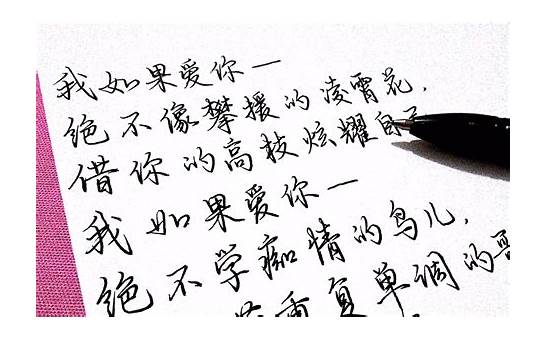 我如果爱你一
绝不像攀援的凌霄花,
借你的高枝炫耀自
我如果爱你一
绝不学痴情的鸟儿,
重复单调的